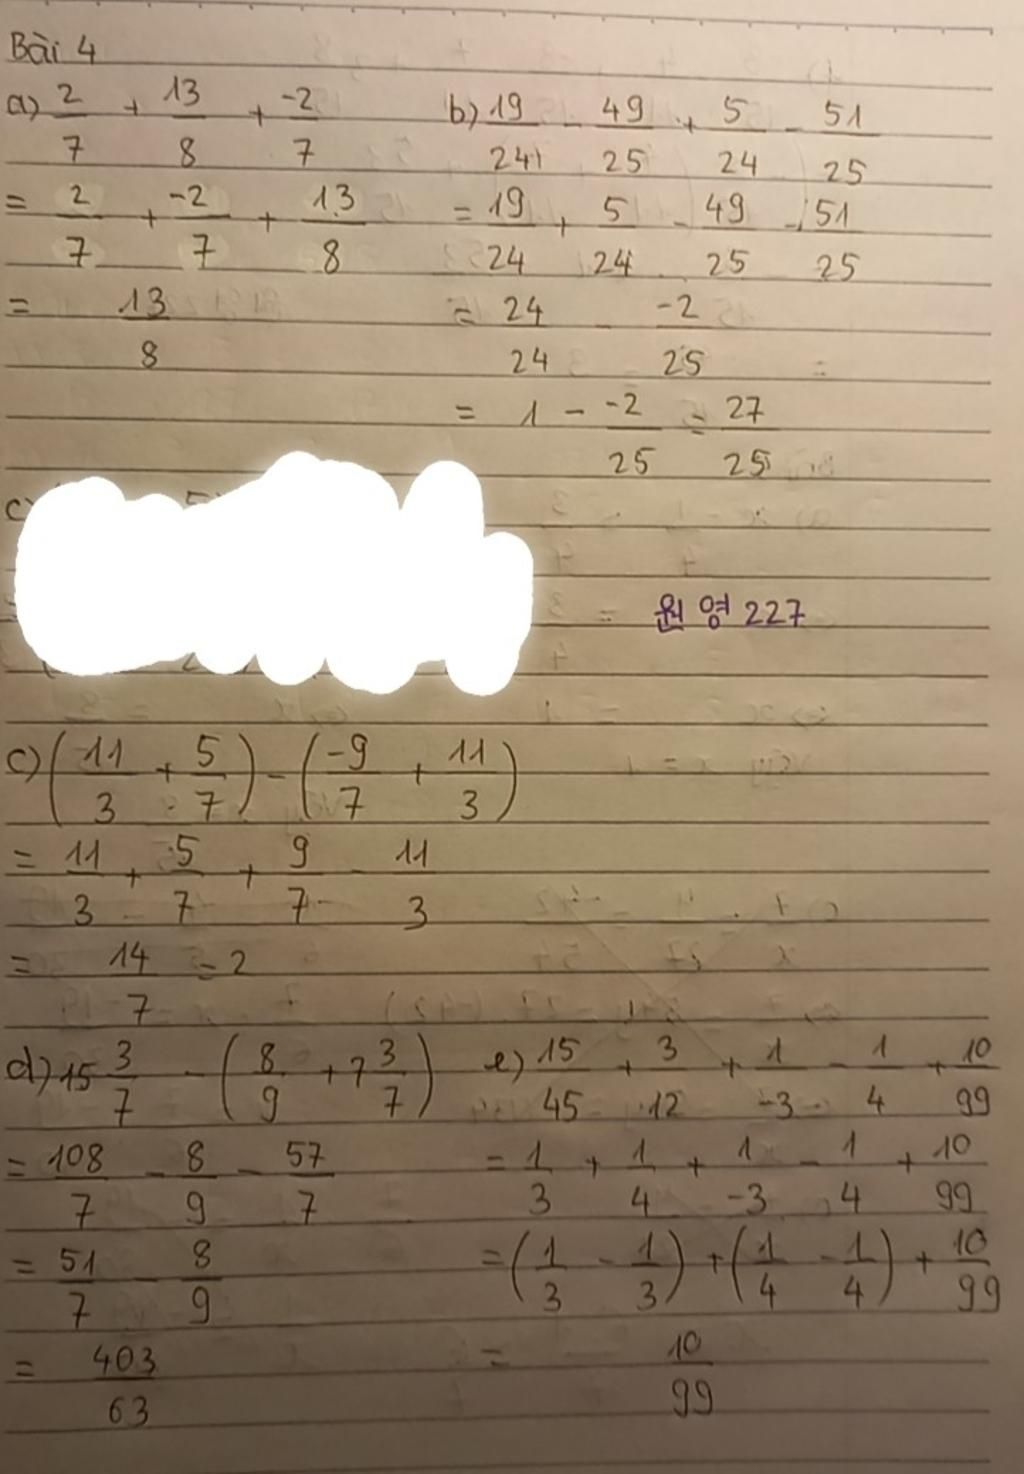 Bài 4
a) 2/7 + 13/8 + -2/7
= 2/7 + -2/7 + 13/8
= 13/8
b) 19/24 - 49/25 + 5/24 - 51/25
= 19/24 + 5/24 - 49/25 - 51/25
= 24/24 - -2/25
= 1 - -2/25 = 27/25
c)
원영 227
c) (11/3 + 5/7) - (-9/7 + 11/3)
= 11/3 + 5/7 + 9/7 - 11/3
= 14/7 = 2
d) 15 3/7 - (8/9 + 7 3/7)
= 108/7 - 8/9 - 57/7
= 51/7 - 8/9
= 403/63
e) 15/45 + 3/12 + 1/-3 - 1/4 + 10/99
= 1/3 + 1/4 + 1/-3 - 1/4 + 10/99
= (1/3 - 1/3) + (1/4 - 1/4) + 10/99
= 10/99